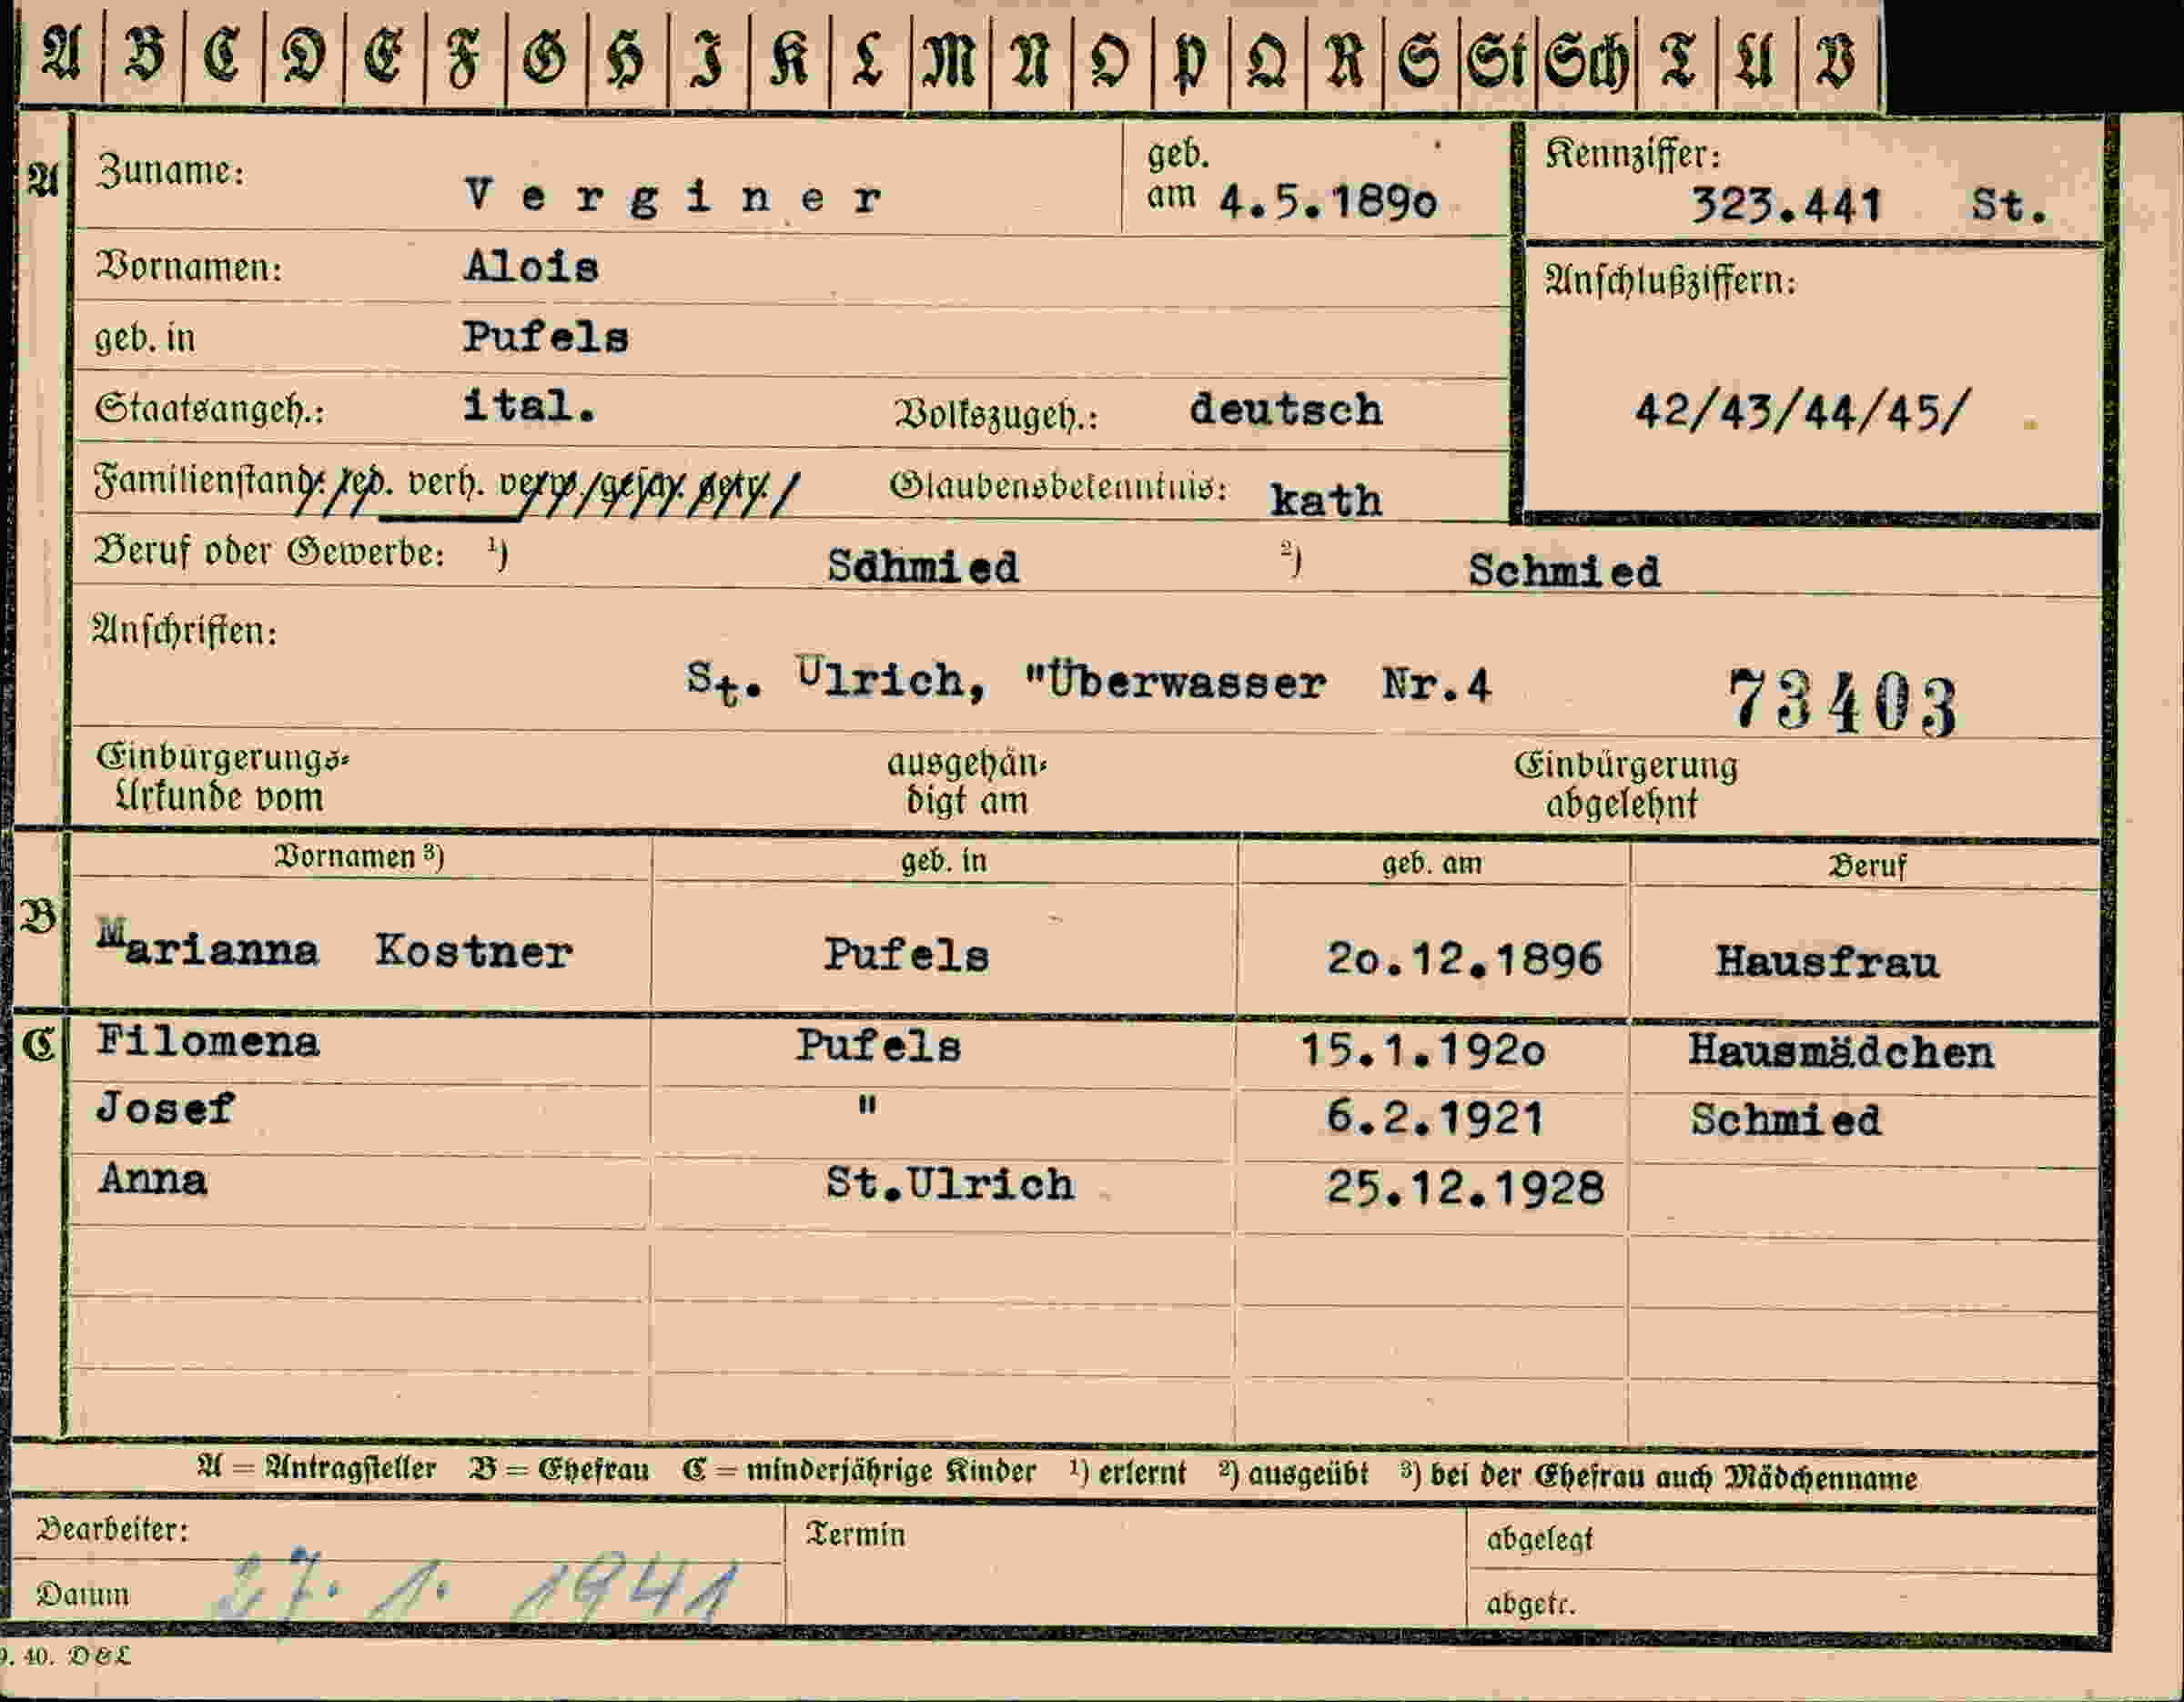 A B C D E F G H I K L M N O P Q R S St Sch T U V
A
Zuname: Verginer geb. am 4.5.1890
Kennziffer: 323.441 St.
Vornamen: Alois
Anschlußziffern:
geb. in Pufels
Staatsangeh.: ital. Volkszugeh.: deutsch
42/43/44/45/
Familienstand: led. verh. verw. gesch. getr. Glaubensbekenntnis: kath
Beruf oder Gewerbe: ¹) Schmied ²) Schmied
Anschriften:
St. Ulrich, "Überwasser Nr.4 73403
Einbürgerungs- ausgehän- Einbürgerung
Urkunde vom digt am abgelehnt
B
Vornamen ³) geb. in geb. am Beruf
Marianna Kostner Pufels 20.12.1896 Hausfrau
C
Filomena Pufels 15.1.1920 Hausmädchen
Josef " 6.2.1921 Schmied
Anna St.Ulrich 25.12.1928
A = Antragsteller B = Ehefrau C = minderjährige Kinder ¹) erlernt ²) ausgeübt ³) bei der Ehefrau auch Mädchenname
Bearbeiter: Termin abgelegt
Datum 27. 1. 1941 abgetr.
9. 40. D&L